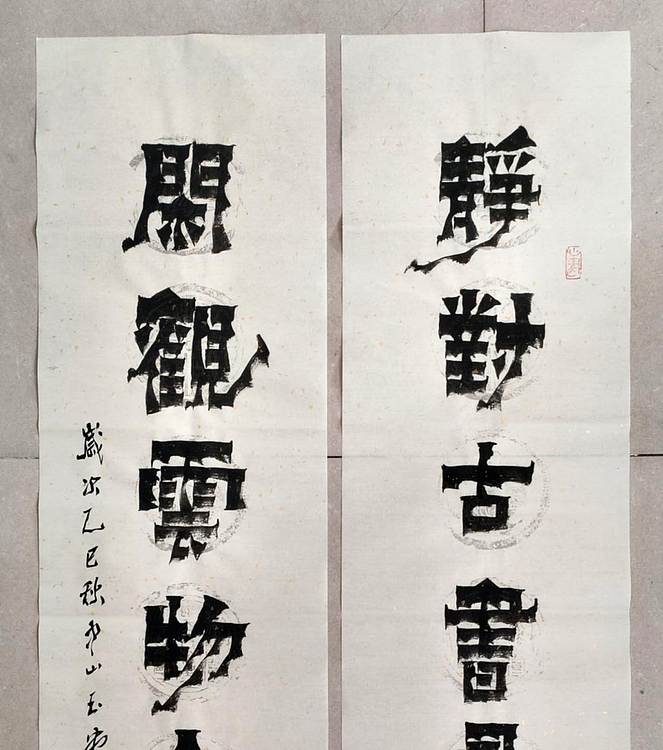 靜對古書
閑觀雲物
歲次乙巳秋山玉